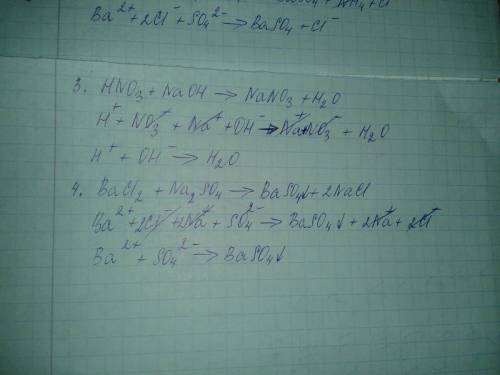 Ba²⁺ + 2Cl⁻ + SO₄²⁻ → BaSO₄ + Cl⁻
3. HNO₃ + NaOH → NaNO₃ + H₂O
H⁺ + NO₃⁻ + Na⁺ + OH⁻ → Na⁺ NO₃⁻ + H₂O
H⁺ + OH⁻ → H₂O
4. BaCl₂ + Na₂SO₄ → BaSO₄↓ + 2NaCl
Ba²⁺ + 2Cl⁻ + 2Na⁺ + SO₄²⁻ → BaSO₄↓ + 2Na⁺ + 2Cl⁻
Ba²⁺ + SO₄²⁻ → BaSO₄↓